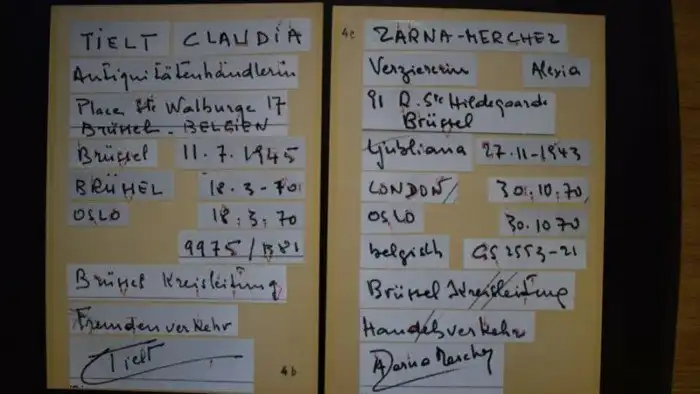 TIELT CLAUDIA
Antiquitätenhändlerin
Place Ste Walburge 17
BRÜSSEL - BELGIEN
Brüssel 11.7.1945
BRÜHEL 18.3-70
OSLO 18.3.70
9975/1381
Brüssel Kreisleitung
Fremdenverkehr
Tielt
4b
4c ZARNA-MERCHEZ
Verziererin Alexia
91 R. Ste Hildegaarde
Brüssel
Ljubliana 27.11-1943
LONDON 30.10.70
OSLO 30.10 70
belgisch GS 2553-21
Brüssel Kreisleitung
Handelsverkehr